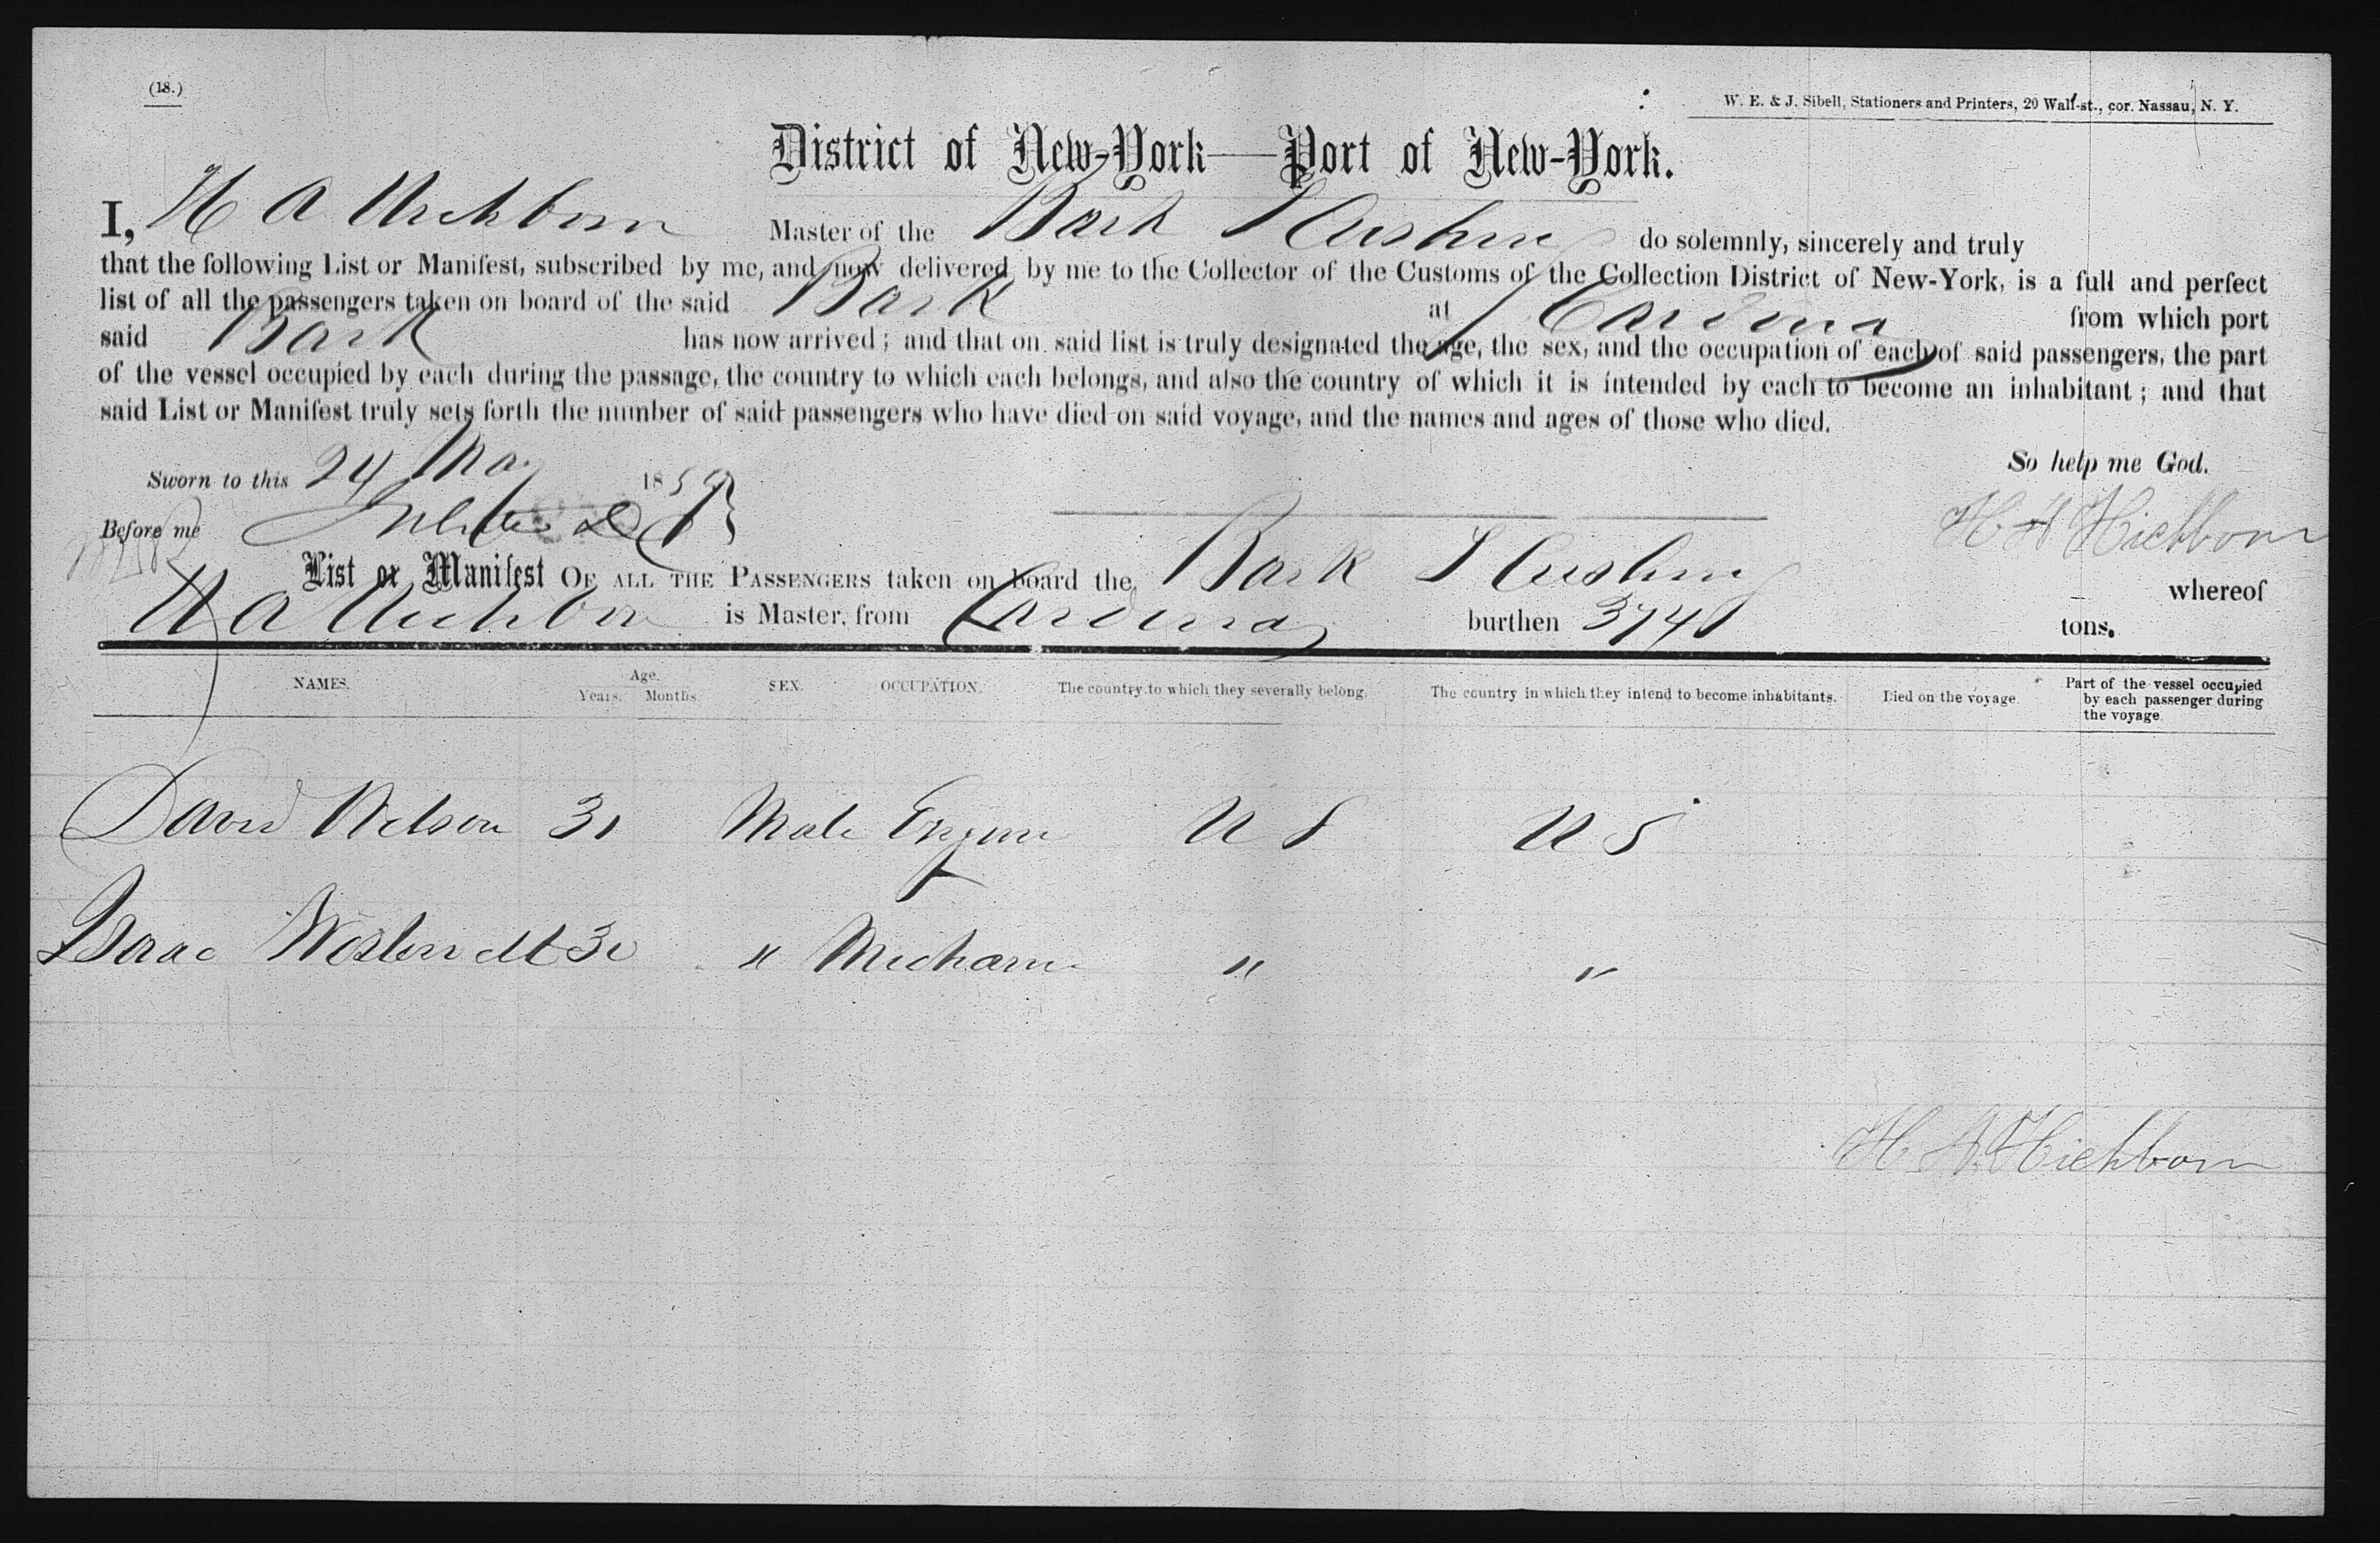 (18.)
W. E. & J. Sibell, Stationers and Printers, 20 Wall-st., cor. Nassau, N. Y.
District of New-York—Port of New-York.
I, H A Hichborn Master of the Bark I Cushing do solemnly, sincerely and truly
that the following List or Manifest, subscribed by me, and now delivered by me to the Collector of the Customs of the Collection District of New-York, is a full and perfect
list of all the passengers taken on board of the said Bark at Cardenas from which port
said Bark has now arrived; and that on said list is truly designated the age, the sex, and the occupation of each of said passengers, the part
of the vessel occupied by each during the passage, the country to which each belongs, and also the country of which it is intended by each to become an inhabitant; and that
said List or Manifest truly sets forth the number of said passengers who have died on said voyage, and the names and ages of those who died.
So help me God.
Sworn to this 24 May 1859
Before me
H A Hichborn
List or Manifest OF ALL THE PASSENGERS taken on board the Bark I Cushing whereof
H A Hichborn is Master, from Cardenas burthen tons.
NAMES. Age. Years. Months. SEX. OCCUPATION. The country to which they severally belong. The country in which they intend to become inhabitants. Died on the voyage. Part of the vessel occupied by each passenger during the voyage.
David Nelson 31 Male U S U S
Isaac 30 " Mechanic " "
H. A. Hichborn